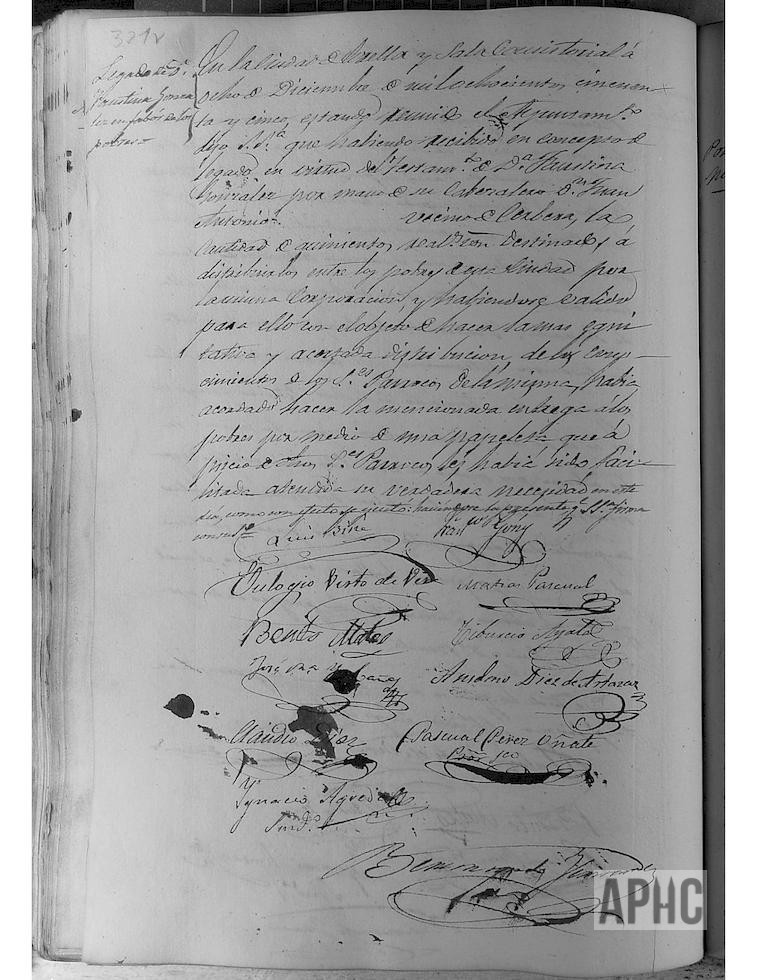 321v
Legado de D.ª
Faustina Gonza
lez en favor de los
pobres
En la Ciudad de Corella y Sala Consistorial á
ocho de Diciembre de mil ochocientos cincuen-
ta y cinco, estando reunido el Ayuntam.to
dijo S.S.ª que habiendo recibido en concepto de
legado en virtud del Testam.to de D.ª Faustina
Gonzalez por mano de su Cabezalero D.n Juan
Antonio vecino de Cerbera, la
Cantidad de quinientos real vellon destinados á
distribuirlos entre los pobres de esta Ciudad por
la misma Corporacion, y habiendose valido
para ello con el objeto de hacer la mas equi
tativa y acertada distribucion, de los cono-
cimientos de los S.es Parrocos de la misma, habia
acordado hacer la mencionada entrega á los
pobres por medio de una papeleta que á
juicio de dhos S.es Parrocos les habia sido faci-
litada atendida su verdadera necesidad en este
dia, como con efecto se ejecutó: haciendo la presente q.e S.S.ª firma
Luis
Eulogio Virto de Vera Matias Pascual
Benito Mateo Tiburcio Ayala
José
Anselmo Diez de
Claudio Diez Pascual Perez Oñate
Ygnacio Agreda
Sind.o
APHC